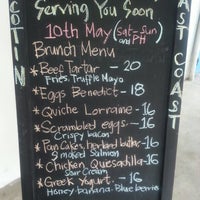 Serving You Soon
10th May (Sat-Sun and PH)
Brunch Menu
* Beef Tartar - 20
Fries, Truffle Mayo
* Eggs Benedict - 18
* Quiche Lorraine - 16
* Scrambled eggs - 16
Crispy bacon
* Pan Cakes, herb and butter - 16
smoked Salmon
* Chicken Quesadilla - 16
Sour Cream
* Greek Yogurt - 16
Honey banana. Blue berries
COTIN
EAST COAST